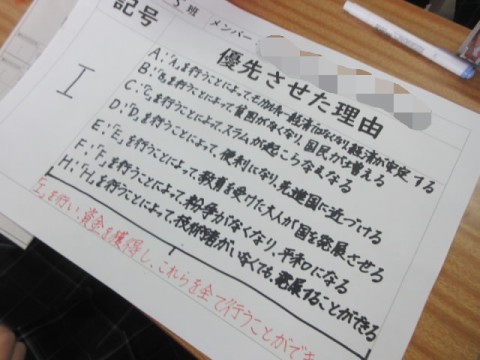 5 班 メンバー
記号 優先させた理由
I
A:「A」を行うことによってモノカルチャー経済ではなくなり、経済が安定する
B:「B」を行うことによって貧困がなくなり、国民が増える
C:「C」を行うことによって、スラムが起こらなくなる
D:「D」を行うことによって、便利になり、先進国に近づける
E:「E」を行うことによって、教育を受けた大人が国を発展させる
F:「F」を行うことによって、紛争がなくなり、平和になる
H:「H」を行うことによって、技術者がいなくても、発展することができる
「I」を行い、資金を獲得し、これらを全て行うことができ